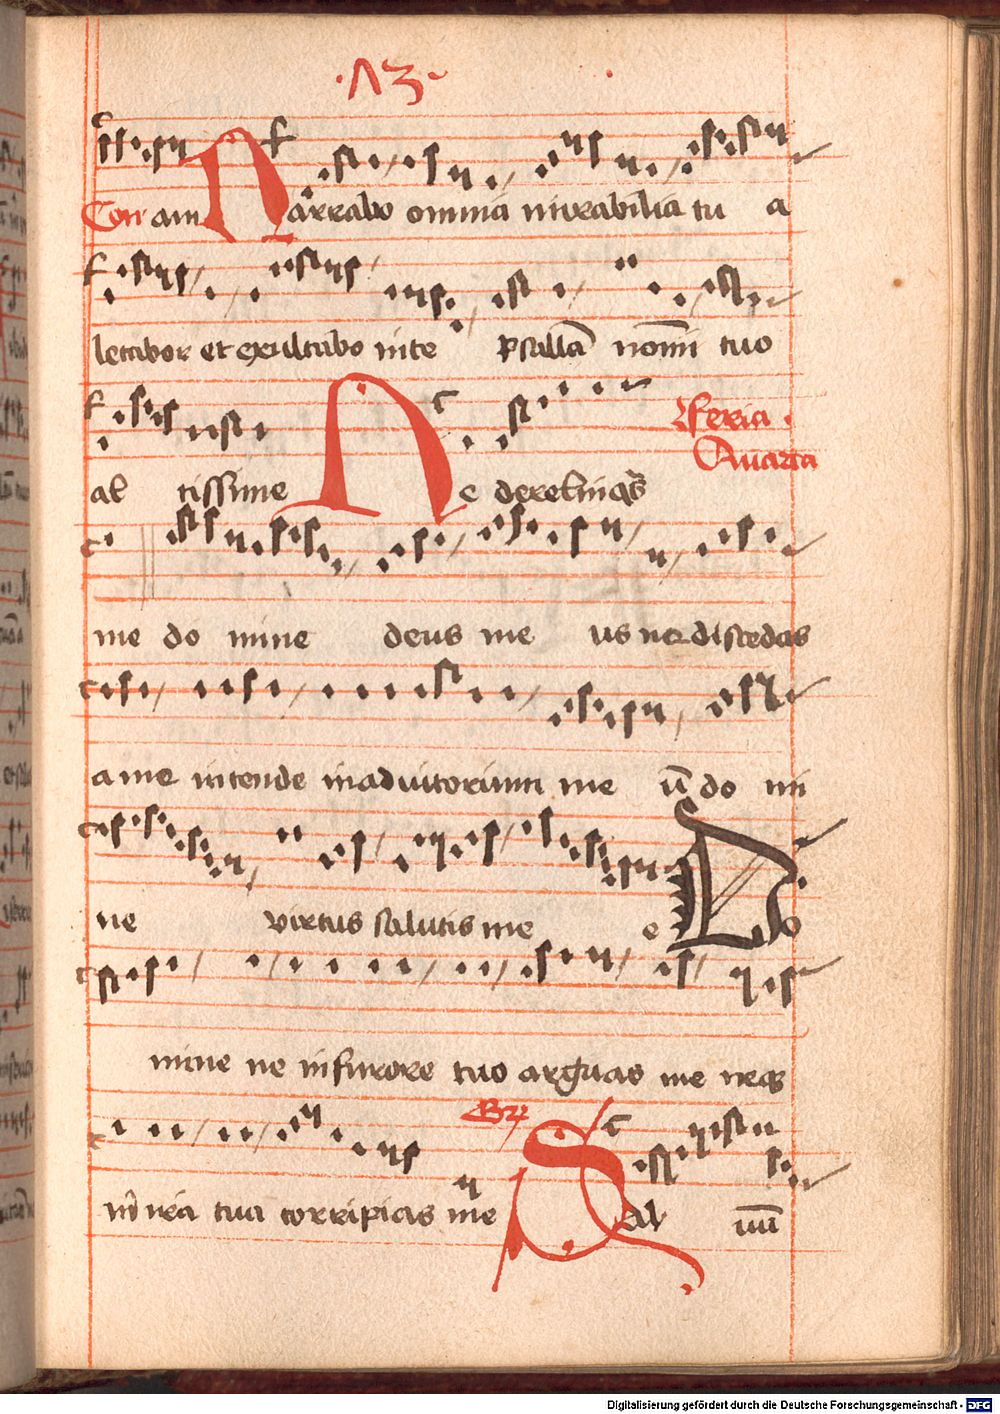 ·13·
Con am Narrabo omnia mirabilia tu a
letabor et exultabo inte psallā nomī tuo
feria
Quarta
al tissime Ne derelinqs
me do mine deus me us ne discedas
a me intende in adiutorium me ū do mi
ne virtus salutis me e Do
mine ne in furore tuo arguas me neqs
in ira tua corripias me Sal uū
Digitalisierung gefördert durch die Deutsche Forschungsgemeinschaft - DFG